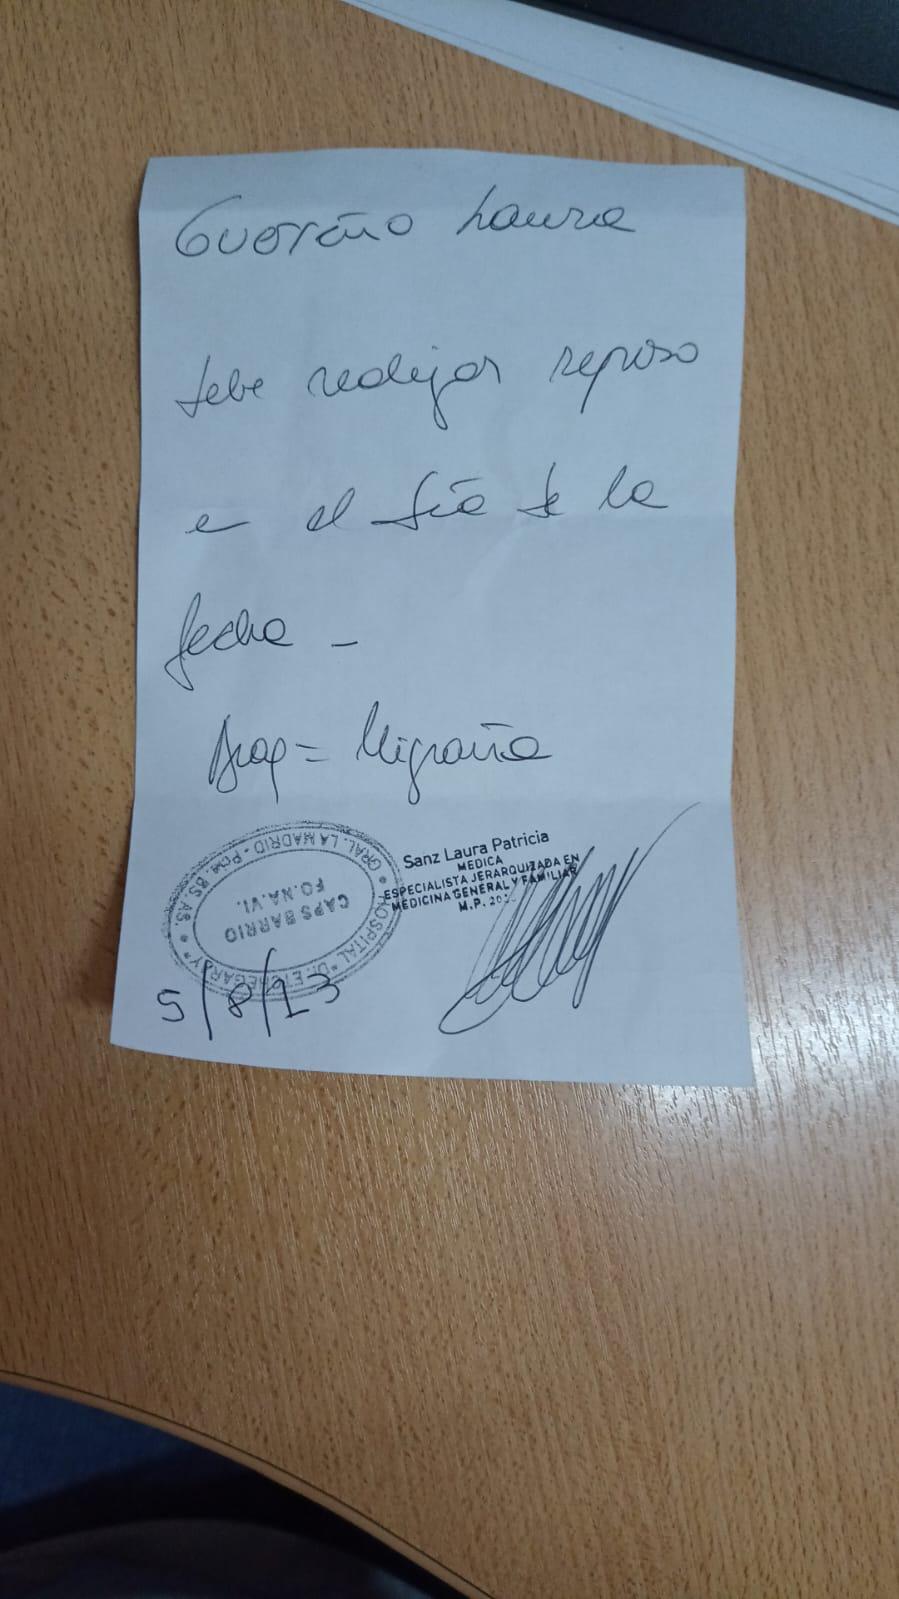 Laura
debe realizar reposo
en el día de la
fecha -
Diag = Migraña
Sanz Laura Patricia
MEDICA
ESPECIALISTA JERARQUIZADA EN
MEDICINA GENERAL Y FAMILIAR
M.P.
HOSPITAL "D. ETCHEGARAY" * GRAL. LA MADRID - Pcia. BS. AS. *
CAPS BARRIO
FO.NA.VI.
5/8/23